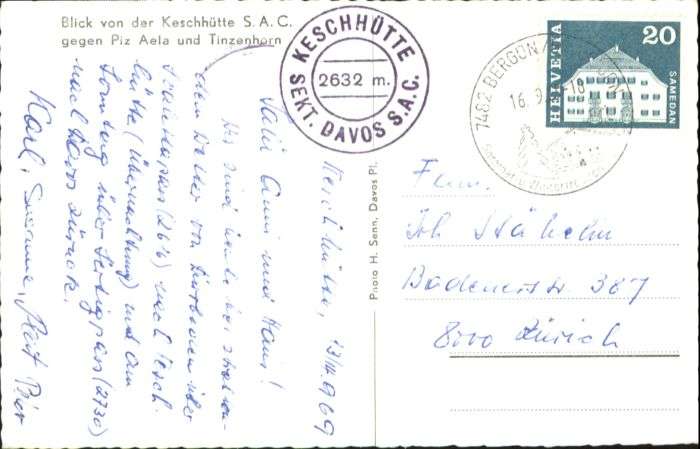 Blick von der Keschhütte S.A.C.
gegen Piz Aela und Tinzenhorn
KESCHHÜTTE
2632 m.
SEKT. DAVOS S.A.C.
HELVETIA
20
SAMEDAN
7482 BERGÜN
16. 9.
-18
Photo H. Senn, Davos Pl.
Keschhütte,
Salü Anni und Hans!
Wir sind heute bei
Wetter von über
nach
hütte (Übernachtung) und am
Sonntag über Sertigpass (2730)
nach Davos zurück.
Karli, Susanne, Peter
Fam.
Joh Stähelin
Badenerstr 387
8000 Zürich